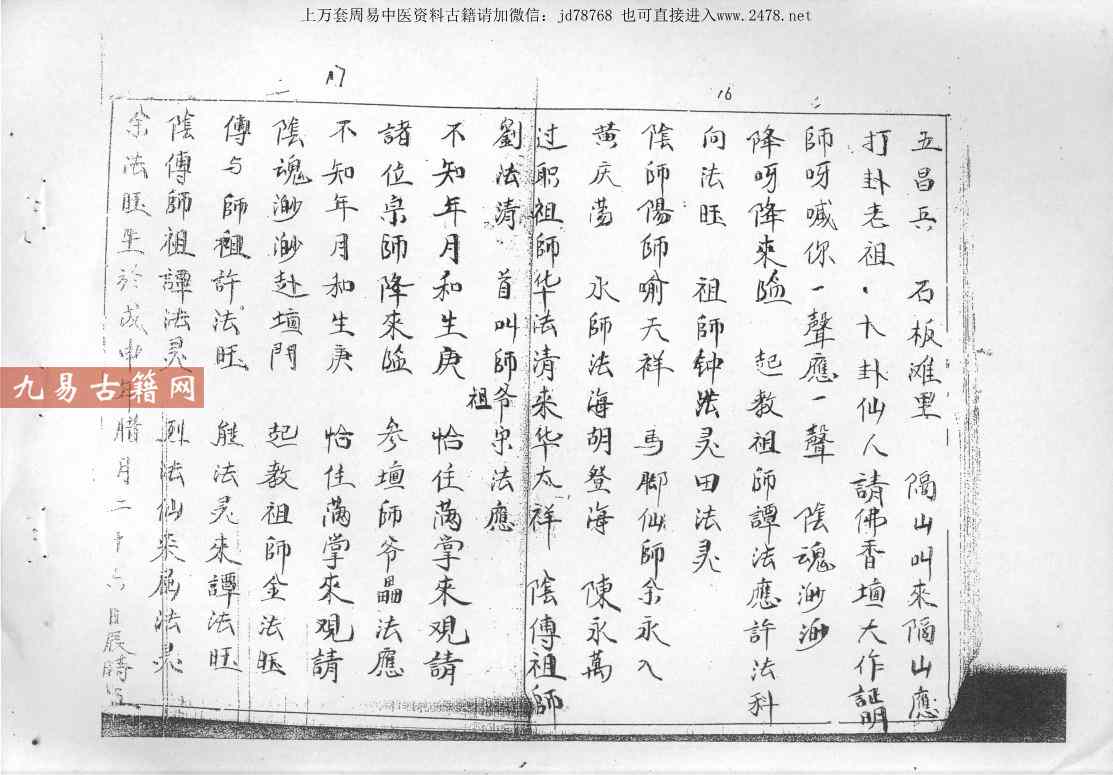 上万套周易中医资料古籍请加微信：jd78768 也可直接进入www.2478.net
16
五昌兵 石板滩里 隔山叫来隔山應
打卦老祖、卜卦仙人請佛香壇大作証明
師呀喊你一聲應一聲 陰魂渺渺
降呀降來臨 起教祖師譚法應許法科
向法旺 祖師钟法灵田法灵
陰師陽師喻天祥 馬脚仙師余永入
黄庆荡 水師法海胡登海 陳永萬
过职祖師华法清来华太祥 陰傳祖師
17
劉法清 首叫師爷宋法應
祖
不知年月和生庚 恰在滿掌來观請
諸位宗師降來臨 参壇師爷 法應
不知年月和生庚 恰在滿掌來观請
陰魂渺渺赴壇門 起教祖師金法旺
傳与師祖許法旺 熊法灵来譚法旺
陰傳師祖譚法灵 法仙来 法灵
余法旺生於戊申年腊月二十六日辰時
九易古籍网